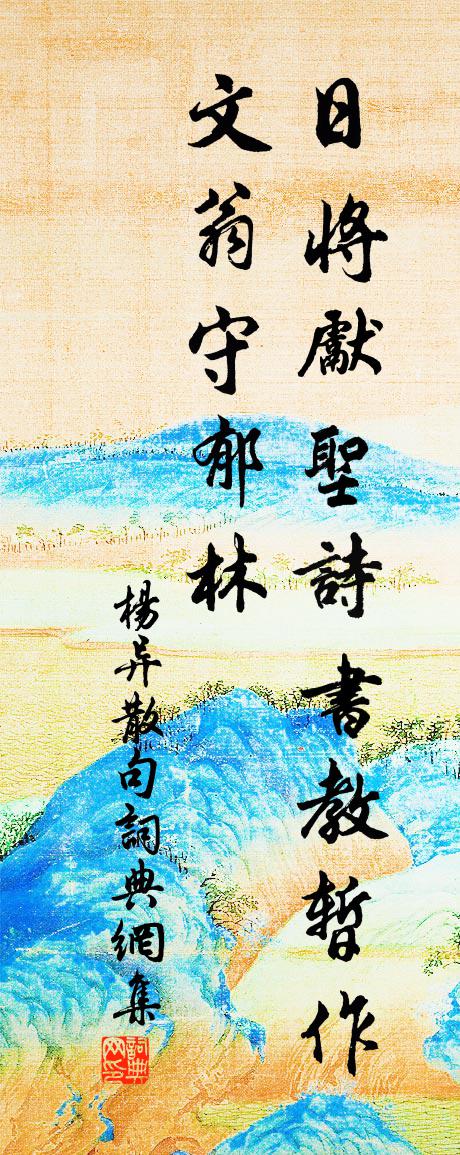 日將獻聖詩書教暫作
文翁守郁林
楊异散句詞典網集
詞典
网印